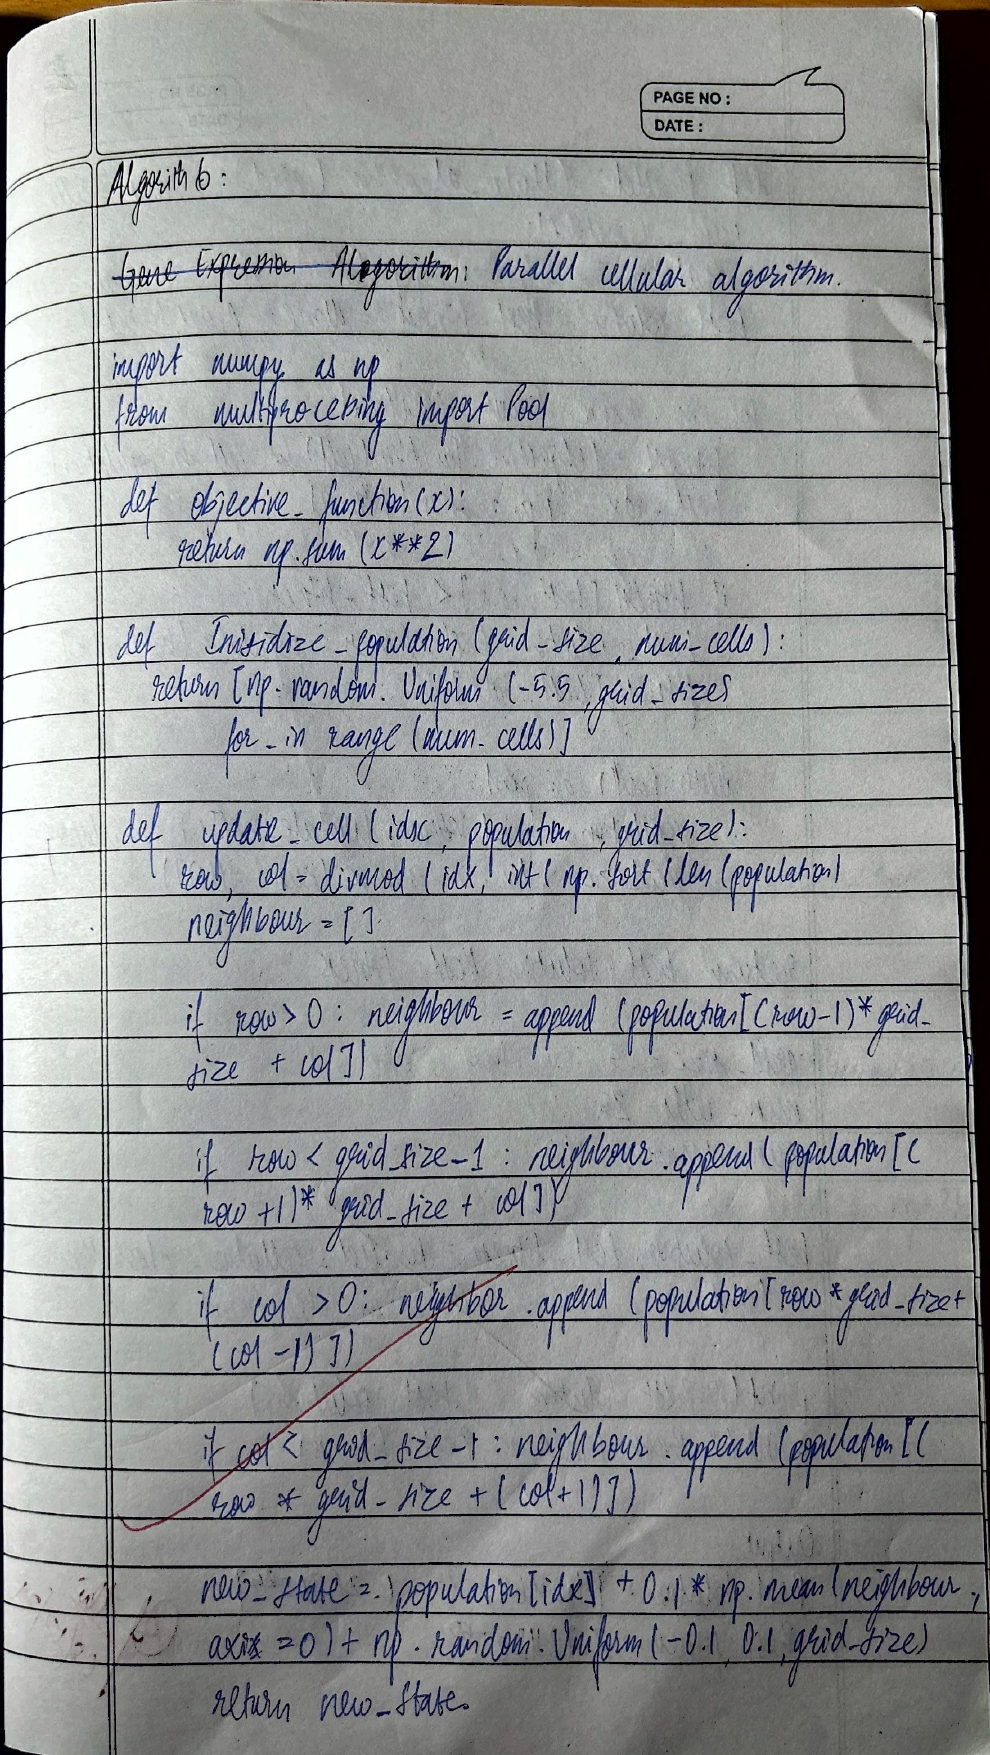 PAGE NO :
DATE :
Algorith 6:
Gene Expression Alogorithm: Parallel cellular algorithm.
import numpy as np
from multiprocebing import Pool
def objective_function(x):
return np.sum (x**2)
def Initidize_population (grid_size, num_cells):
return [np.random.Uniform (-5.5, grid_size)
for _ in range (num_cells)]
def update_cell (idsc, population, grid_size):
row, col = divmod (idx, int( np.sort (len (population)
neighbour = [ ].
if row > 0 : neighbour = append (population[(row-1)* grid_
size + col ])
if row < grid_size-1 : neighbour.append ( population [(
row +1)* grid_size + col ])
if col >0: neighbor.append (population [row * grid_size+
(col -1) ])
if col < grid_size-1 : neighbour.append (population [(
row * grid_size + (col+1)])
new_state = population[idx] + 0.1 * np.mean (neighbour,
axis =0) + np.random.Uniform (-0.1, 0.1, grid_size)
return new_state.